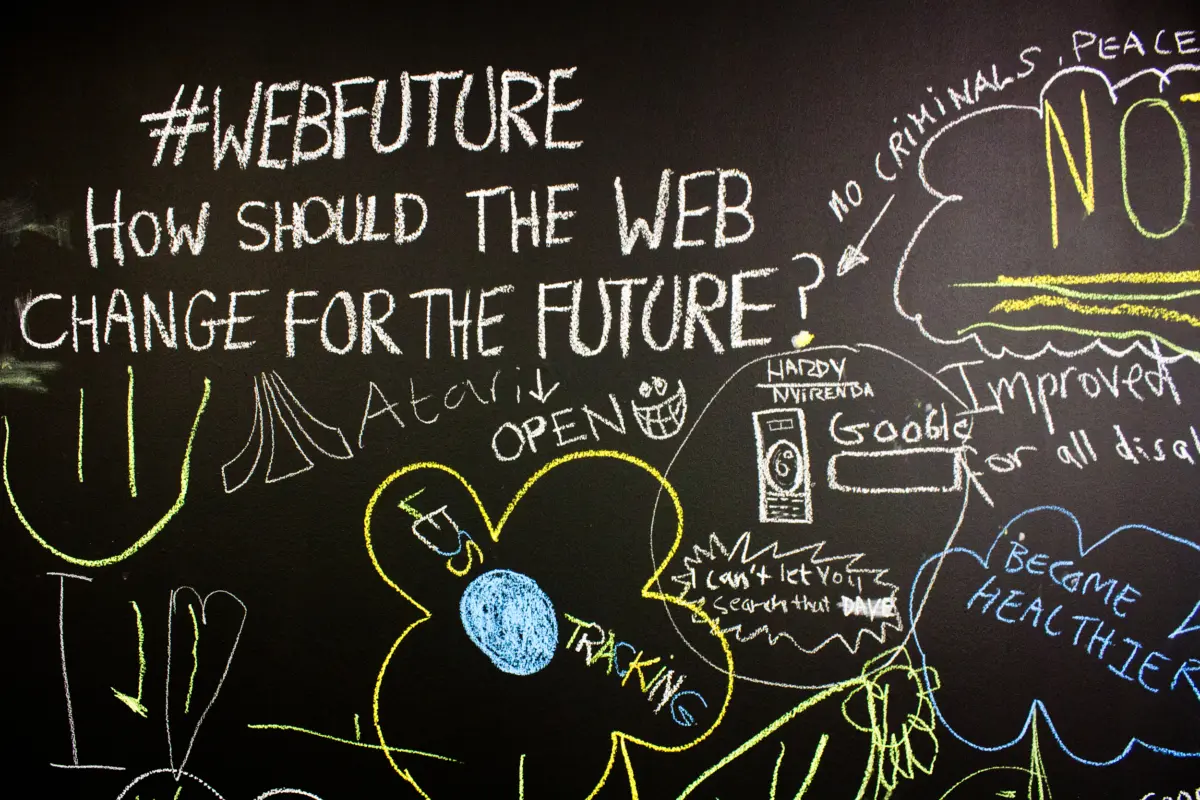 #WEBFUTURE
HOW SHOULD THE WEB
CHANGE FOR THE FUTURE?
NO CRIMINALS, PEACE
NO
Atari
OPEN
HARDY
NYIRENDA
Google
Improved
for all
I can't let you
search that DAVE
LESS
TRACKING
BECOME
HEALTHIER
I